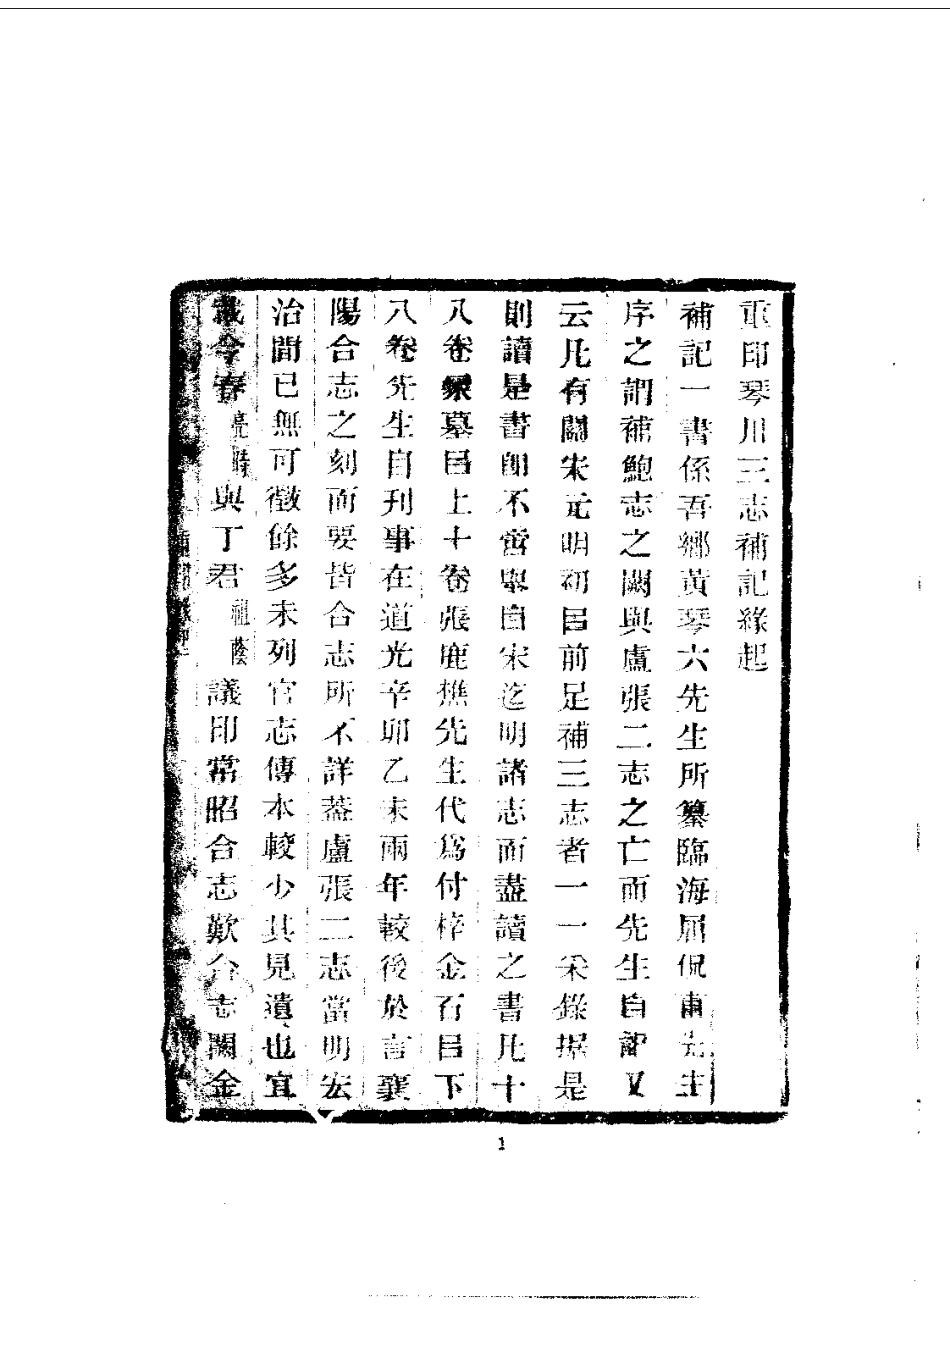 重印琴川三志補記緣起
補記一書係吾鄉黃琴六先生所纂臨海屈侃甫先生
序之謂補鮑志之闕與盧張二志之亡而先生自記又
云凡有關宋元明初㠯前足補三志者一一采錄据是
則讀是書卽不啻與自宋迄明諸志而盡讀之書凡十
八卷冢墓㠯上十卷張鹿樵先生代爲付梓金石㠯下
八卷先生自刊事在道光辛卯乙未兩年較後於言襄
陽合志之刻而要皆合志所不詳葢盧張二志當明宏
治間已無可徵餘多未列官志傳本較少其見遺也宜
哉今春 與丁君祖蔭議印常昭合志歎合志闕金
1